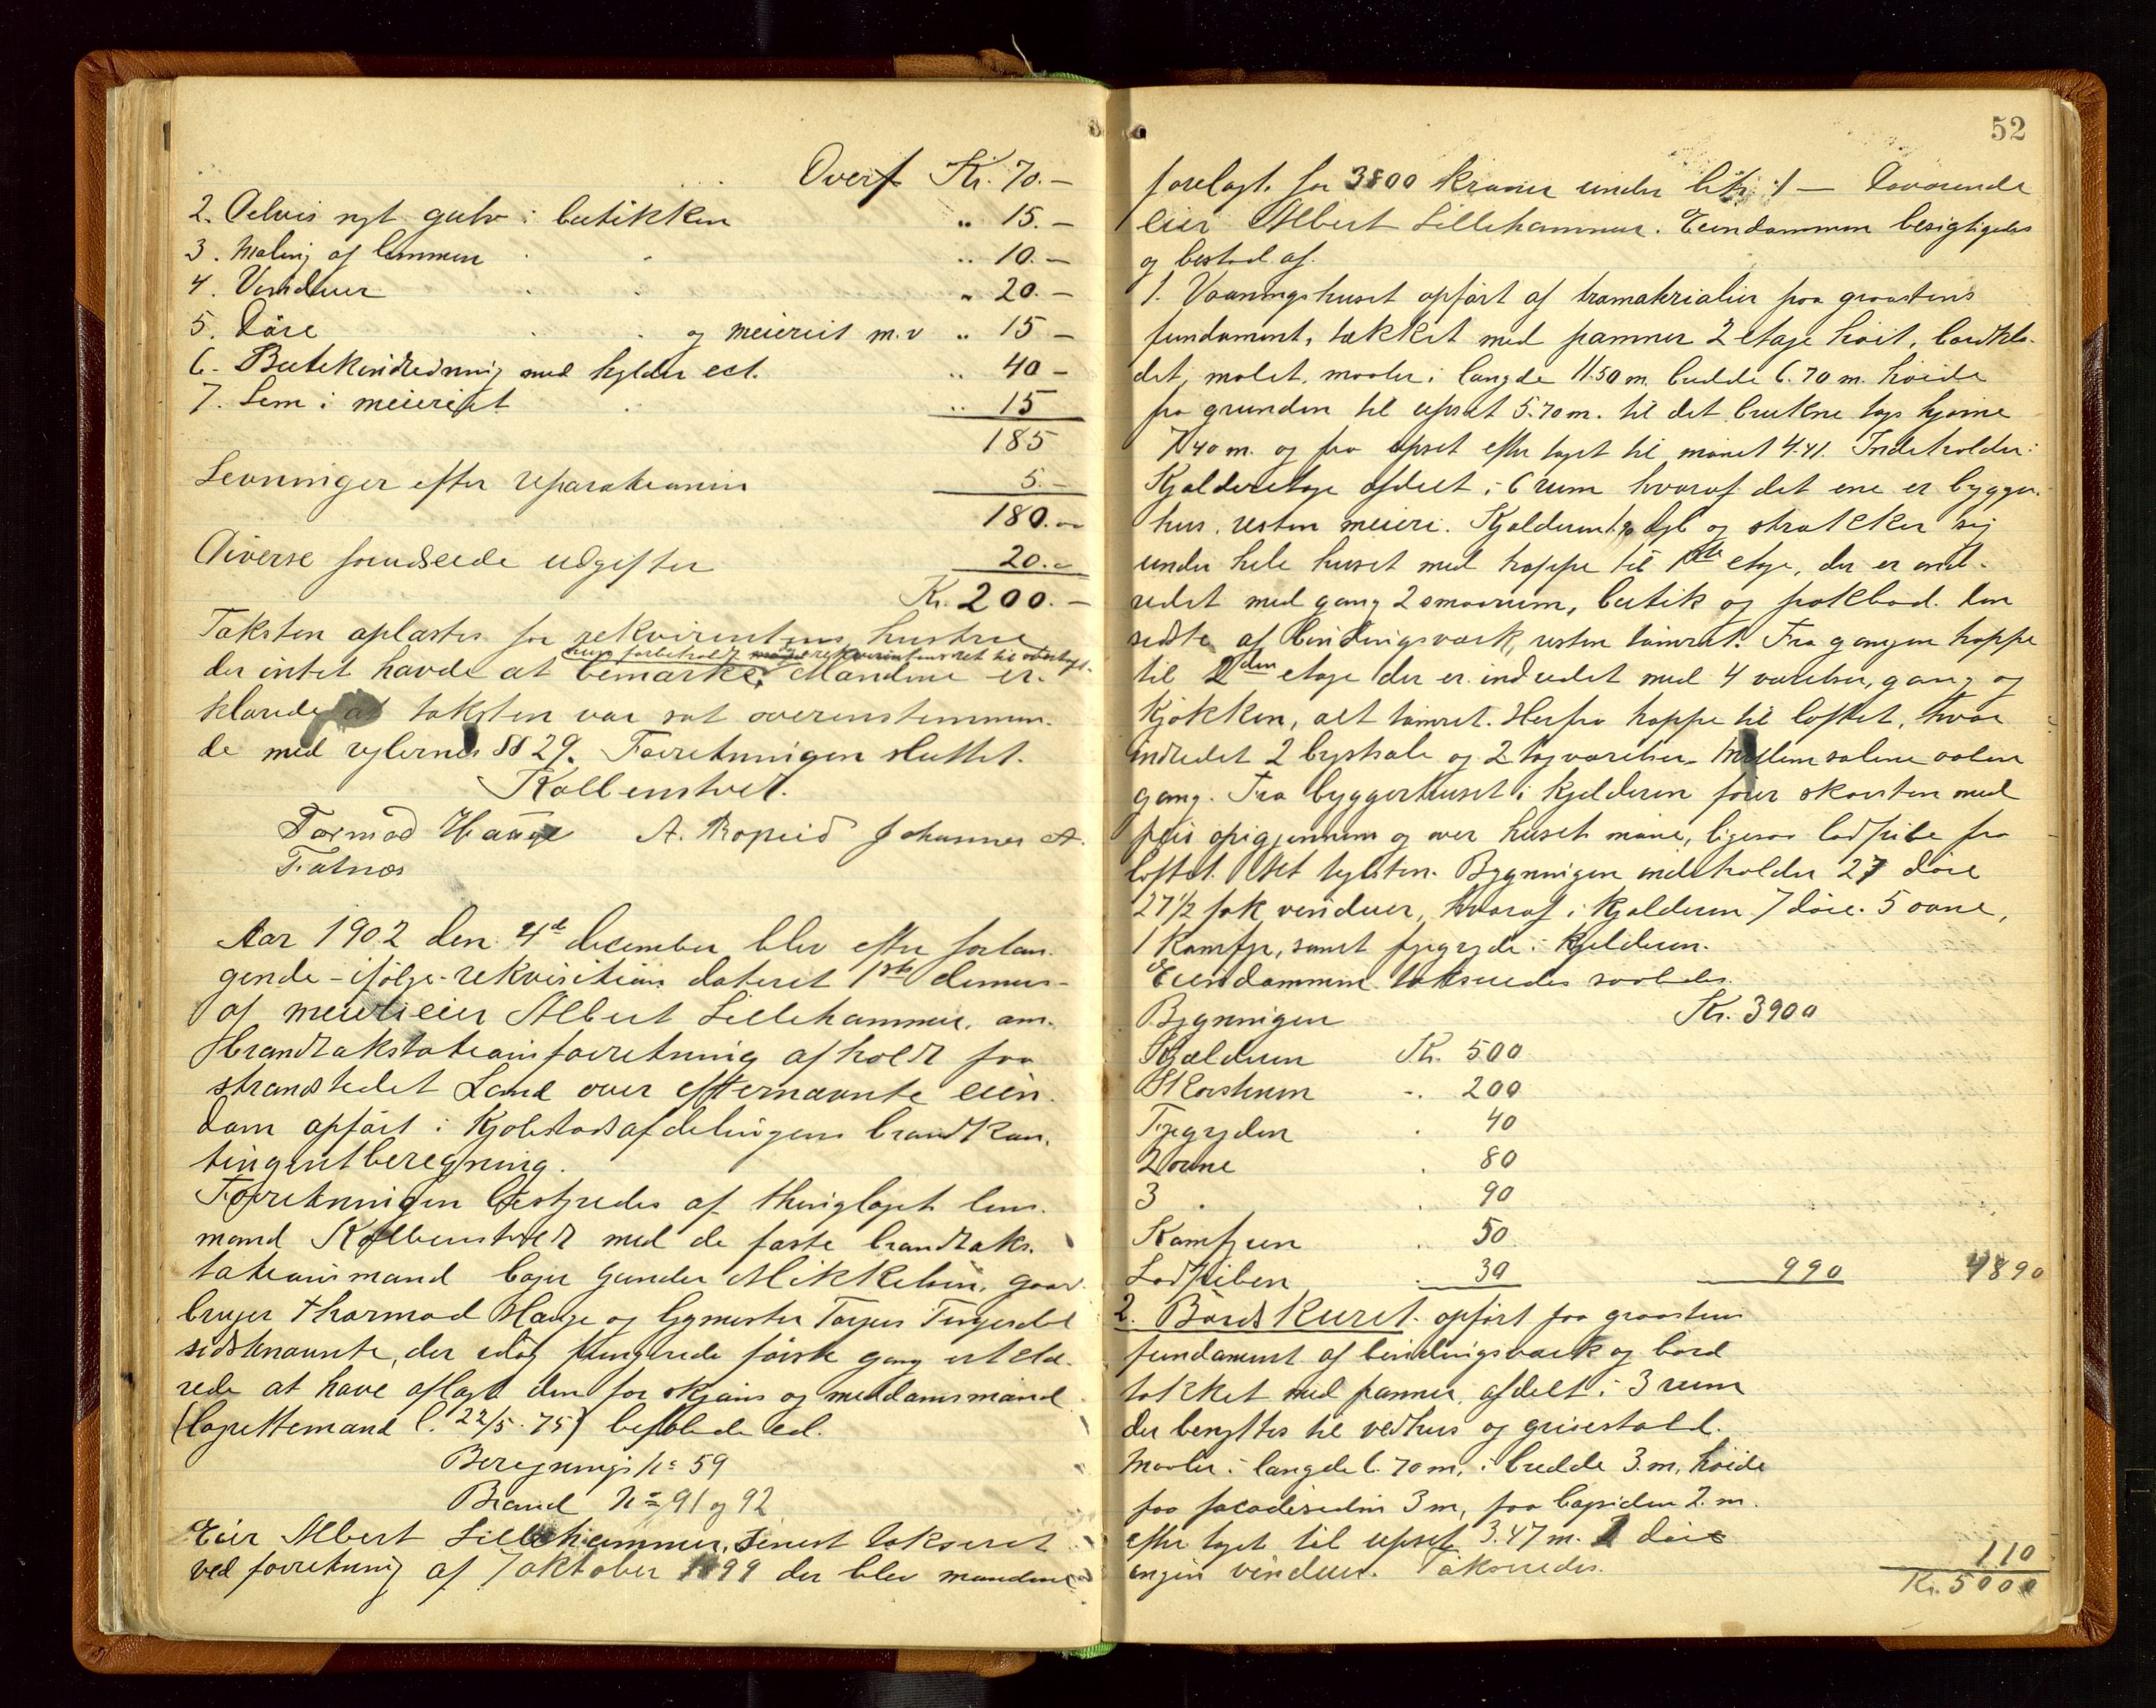 Overf Kr. 70.-
2. Delvis nyt gulv i butikken " 15.-
3. Maling af lemmen " 10.-
4. Vinduer " 20.-
5. Døre og meieriet m.v " 15 -
6. Butikindredning med hylder ect. " 40 -
7. Lem i meieriet " 15
185
Levninger efter reparationen 5.-
180.
Diverse forudseede udgifter 20.
Kr. 200.-
Taksten oplæstes for rekvirentens hustru
hun forbeholdt rekvirentens ret til
der intet havde at bemærke. Mændene er-
klærede at taksten var sat overenstemmen-
de med reglernes §§ 29. Forretningen sluttet.
Kolbenstvedt.
Tormod Hauge A. Ropeid Johannes A.
Fatnæs
Aar 1902 den 4de december blev efter forlan-
gende - ifølge rekvisition dateret 1ste dennes -
af meierieier Albert Lillehammer, om-
brandtakstationsforretning afholdt paa
strandstedet Sand over efternævnte eien-
dom opført i Kjøbstadsafdelingens brandkon-
tingentberegning.
Forretningen bestyredes af thinglagets lens-
mand Kolbenstvedt med de faste brandtaks-
tationsmænd bager Gunder Mikkelsen, gaard-
bruger Thormod Hauge og bygmester Torger Tengesdal
sidstnævnte, der idag fungerede første gang erklæ-
rede at have aflagt den for skjøns og meddomsmænd
(lagrettemænd l. 22/5. 75) befalede ed.
Beregnings No 59
Brand No 91 og 92
Eier Albert Lillehammer, senest takseret
ved forretning af 7 oktober 1899 der blev mændene
52
forelagt. for 3800 kroner under litr :/ - Daværende
eier Albert Lillehammer. Eiendommen besigtigedes
og bestod af.
1. Vaaningshuset opført af træmaterialier paa graastens
fundament, tækket med panner 2 etage høit, bordklæ-
det, malet, maaler i længde 11.50 m. bredde 6.70 m. høide
fra grunden til upset 5.70 m. til det brukne tags hjørne
7.40 m. og fra upset efter taget til mønet 4.41. Indeholder:
Kjælderetage afdelt i 6 rum hvoraf det ene er bygger-
hus, resten meieri. Kjælderen dyb og strækker sig
under hele huset med trappe til 1ste etage, der er ind-
redet med gang 2 smaarum, butik og pakbod. den
sidste af bindingsværk, resten tømret. Fra gangen trappe
til 2den etage der er indredet med 4 værelser, gang og
kjøkken, alt tømret. Herfra trappe til loftet, hvor
indredet 2 bystsale og 2 tagværelser. Mellem salene aaben
gang. Fra byggerhuset i kjelderen fører skorsten med
peis opigjennem og over husets møne, ligesaa ladpibe fra
loftet. Alt teglsten. Bygningen indeholder 27 døre
27 1/2 fak vinduer, hvoraf i kjælderen 7 døre. 5 ovne,
1 Komfyr, samt fyrgryde i kjelderen.
Eiendommen takseredes saaledes.
Bygningen Kr. 3900
Kjælderen Kr. 500
Skorstenen " 200
Fyrgryden " 40
2 ovne " 80
3 " " 90
Komfyren " 50
Ladpiben " 30 990 4890
2. Bordskuret. opført paa graastens
fundament af bindingsværk og bord
tækket med panner, afdelt i 3 rum
der benyttes til vedhus og grisestald.
Maaler i længde 6.70 m, i bredde 3. m, høide
paa facadesiden 3 m, paa bagsiden 2. m.
efter taget til upset 3.47 m. 2 døre
ingen vinduer. Takseredes. 110
Kr. 5000